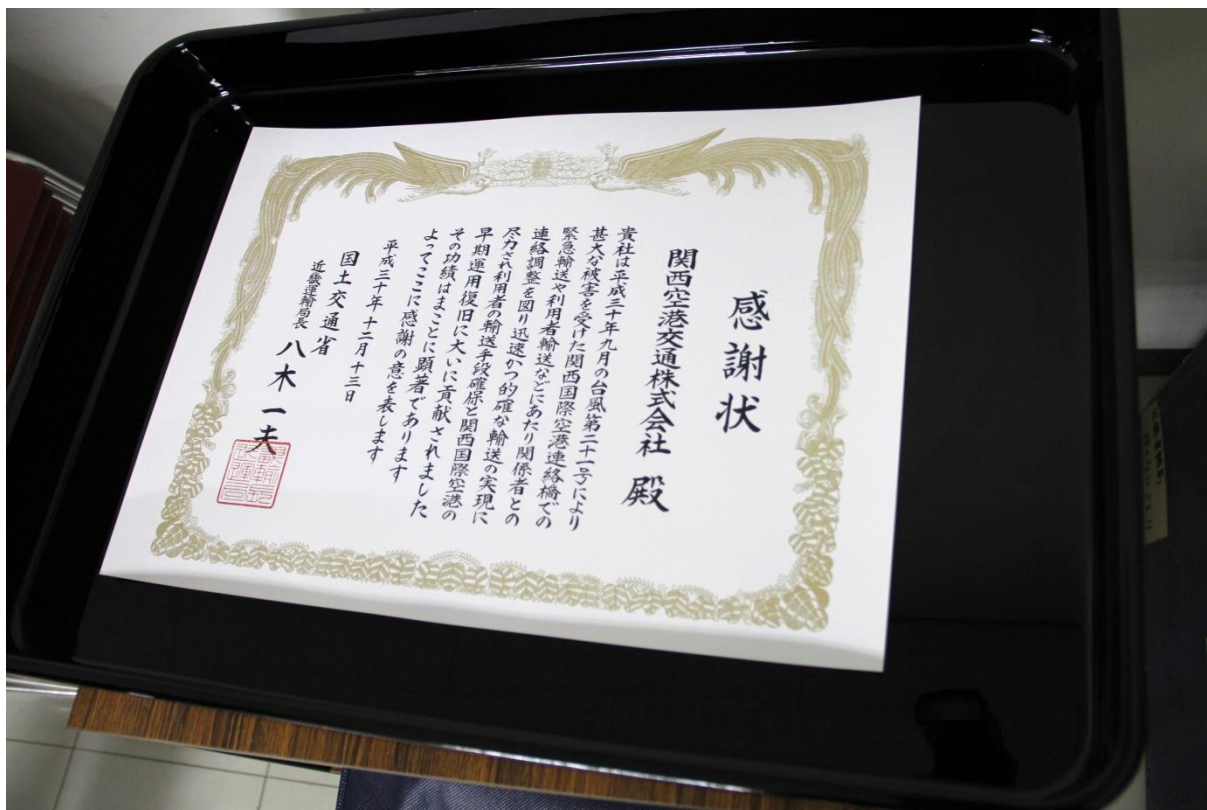 感謝状
関西空港交通株式会社 殿
貴社は平成三十年九月の台風第二十一号により
甚大な被害を受けた関西国際空港連絡橋での
緊急輸送や利用者輸送などにあたり関係者との
連絡調整を図り迅速かつ的確な輸送の実現に
尽力され利用者の輸送手段確保と関西国際空港の
早期運用復旧に大いに貢献されました
その功績はまことに顕著であります
よってここに感謝の意を表します
平成三十年十二月十三日
国土交通省
近畿運輸局長 八木一夫